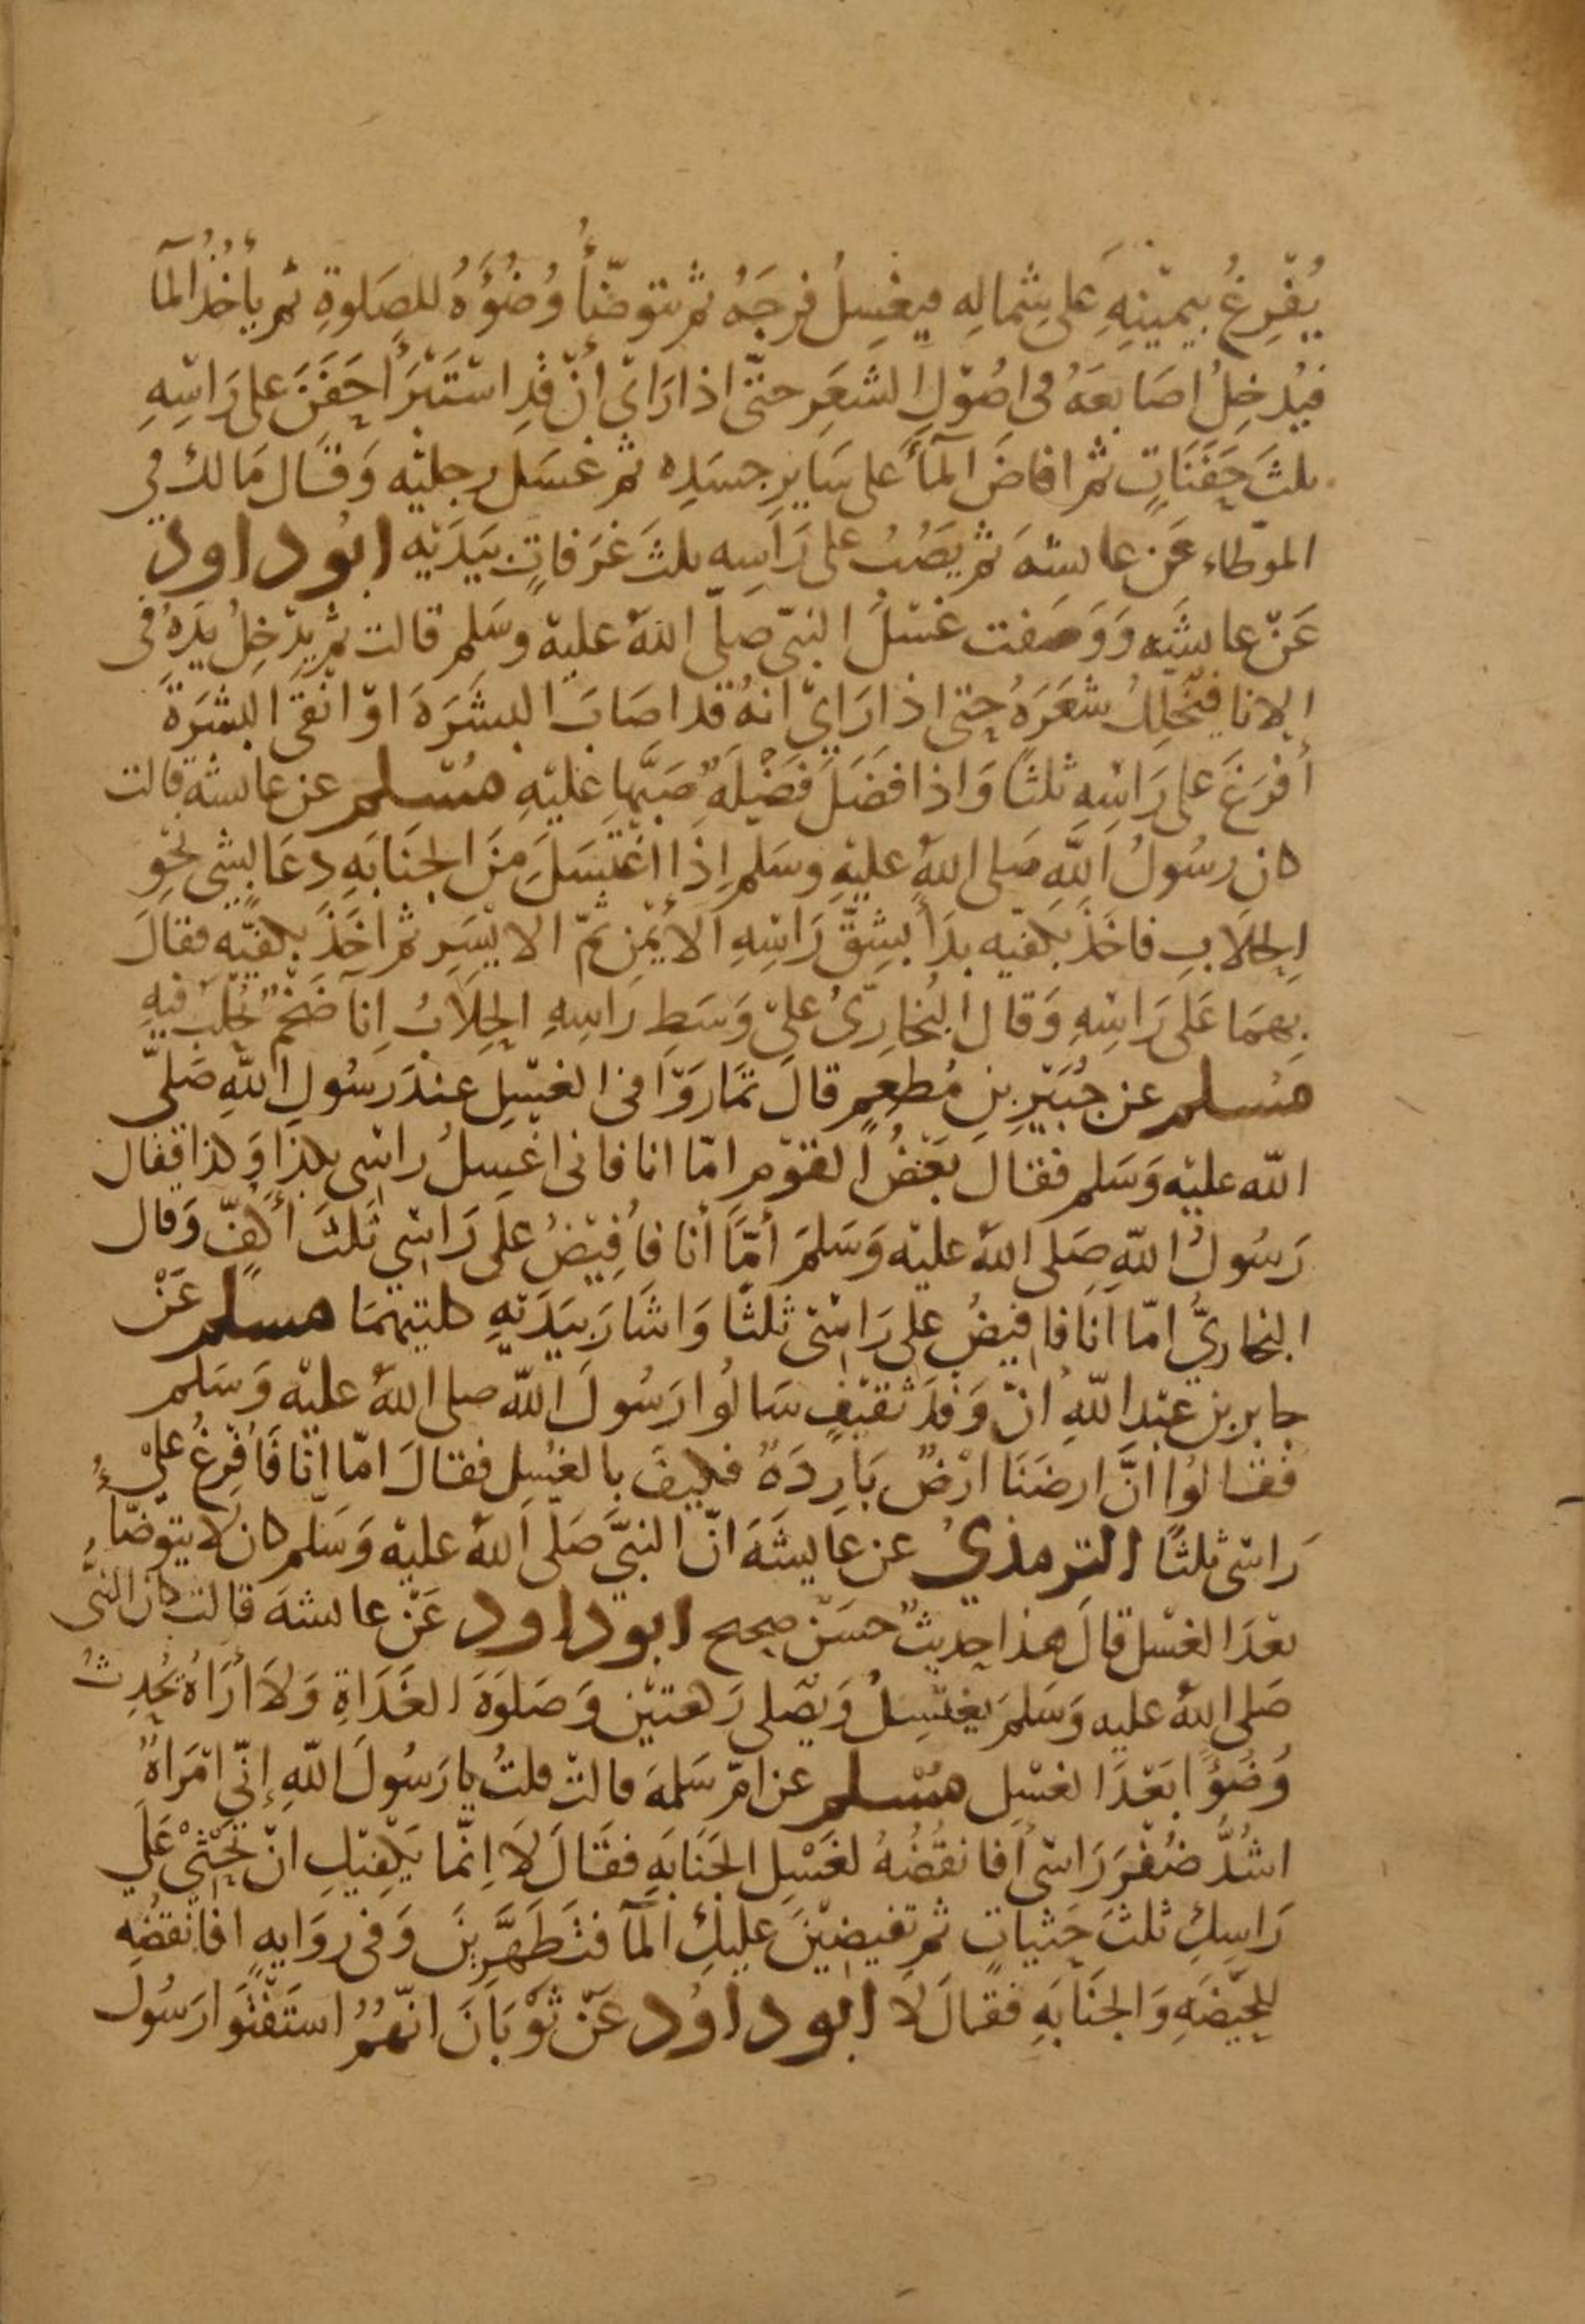 يُفْرِغُ بيمينِهِ عَلى شِمالِهِ فيغسِلُ فرجَهُ ثم يتوضّأُ وُضُوَهُ للصَلوةِ ثم يأخُذُ المآ
فيُدخِلُ اصَابعَهُ فى اصُوْلِ الشعَرِ حتّى اذا رَاىْ أنْ قدِ اسْتَبْرَأ حَفَنَ على رَاسِهِ
ثلثَ حَفَنَاتٍ ثم افاضَ المآءَ على سَايرِ جسَدِه ثم غسَل رجليْه وَقال مَالك فى
الموطاء عَن عايشهَ ثم يَصُبُ على رَاسِه ثلثَ غرَفاتٍ بيَدَيْه ابُو داود
عَنْ عايشَه وَوَصَفت غسْلَ النبىّ صلى اللهُ عليْه وسَلم قالت ثم يدْخِلُ يدَهُ فى
الانا فيُخلِلُ شعَرَهُ حتى اذا رَايْ انهُ قد اصَابَ البشَرَهَ اوْ انقَى البشَرَةَ
أفرَغَ على رَاسِهِ ثلثًا وَاذا فضَلَ فضْلَهٌ صَبَّها عليْهِ مُسْلم عن عايشه قالت
كان رسُولُ اللهِ صَلى اللهُ عليْهِ وسَلم إذَا اغتسَلَ مِنَ الجنَابَهِ دعَا بشىٍ نحْوِ
الحِلَابِ فاخذَ بكفّيه بدَأ بشِقّ رَاسِهِ الأيْمنِ ثمّ الايْسَرِ ثم اخَذَ بكفيّه فقالَ
بِهمَا عَلى رَاسِهِ وَقال البُخارِىُّ علىْ وَسَطِ رَاسِهِ الحِلَابُ اِنآ ضَخْمٌ تُحلَب فيهِ
مُسلم عن جُبَيْرِ بنِ مُطعِمٍ قالَ تمَارَوْا فى الغسْلِ عندَ رَسُولِ اللهِ صَلىّ
الله عليْه وَسَلم فقالَ بَعْضُ القوْمِ امّا انا فانى اغْسِلُ راسى بكذا وَكذا فقال
رَسُولُ اللهِ صَلى اللهُ عليْه وَسَلمَ أمَّا أنا فأفِيْضُ عَلى رَاسِى ثَلثَ أكُفٍّ وَقال
البخارىُّ امّا انَا فافيضُ على رَاسِىْ ثلثًا وَاشَارَ بيَدَيْهِ كلتيهمَا مسلم عَنْ
جابر بن عبْدِ اللهِ انّ وَفدَ ثقيْفٍ سَالُوا رَسُولَ اللهِ صلى اللهُ عليْه وَسَلم
فقالُوا انَّ ارضَنَا ارْضٌ بَارِدَهٌ فكيفَ بالغسْلِ فقالَ امّا انَا فَأفرِغُ علىْ
رَاسى ثلثًا الترمذىُ عن عايشَهَ انّ النبىَّ صَلّى اللهُ عليْه وَسَلم كان لا يتوَضّأُ
بعْدَ الغسْل قالَ هذا حديثٌ حسَنٌ صحيح ابو داود عَنْ عايشهَ قالت كان النبىُّ
صَلى اللهُ عليه وَسَلمَ يغتسِلُ وَيصَلى رَكعتيْن وَصَلوَهَ الغَدَاةِ وَلَا أرَاهُ يحُدِثُ
وُضُوًا بَعْدَ الغسْلِ مُسْلم عن امّ سَلمهَ قالتْ قلتُ يا رَسُولَ اللهِ إنّى امْرَاةٌ
اشُدُّ ضُفْرَ رَاسى أفانقُضُهُ لغَسْلِ الجنَابَهِ فقَالَ لَا اِنّما يَكفيْكِ انْ تحْثىْ عَلى
رَاسِكِ ثلثَ حَثياتٍ ثم تفيضيْنَ عليكِ المآ فتَطهَّرينَ وَفى روَايهٍ افانقضُه
للحيْضَهِ وَالجنَابَهِ فقالَ لَا ابو داوُد عَنْ ثوْبَانَ انّهُمُ استَفْتَوا رَسُول